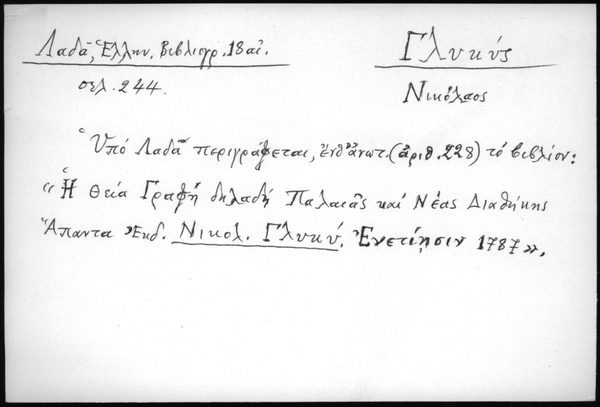 Λαδᾶ, Ἑλλην. Βιβλιογρ. 18 αἰ.
Γλυκύς
σελ. 244.
Νικόλαος
Ὑπό Λαδᾶ περιγράφεται, ἐνθ' ἀνωτ. (ἀριθ. 228) τό βιβλίον:
« Ἡ Θεία Γραφή δηλαδή Παλαιᾶς καί Νέας Διαθήκης
Ἅπαντα » Ἐκδ. Νικολ. Γλυκύ. Ἐνετίῃσιν 1787».